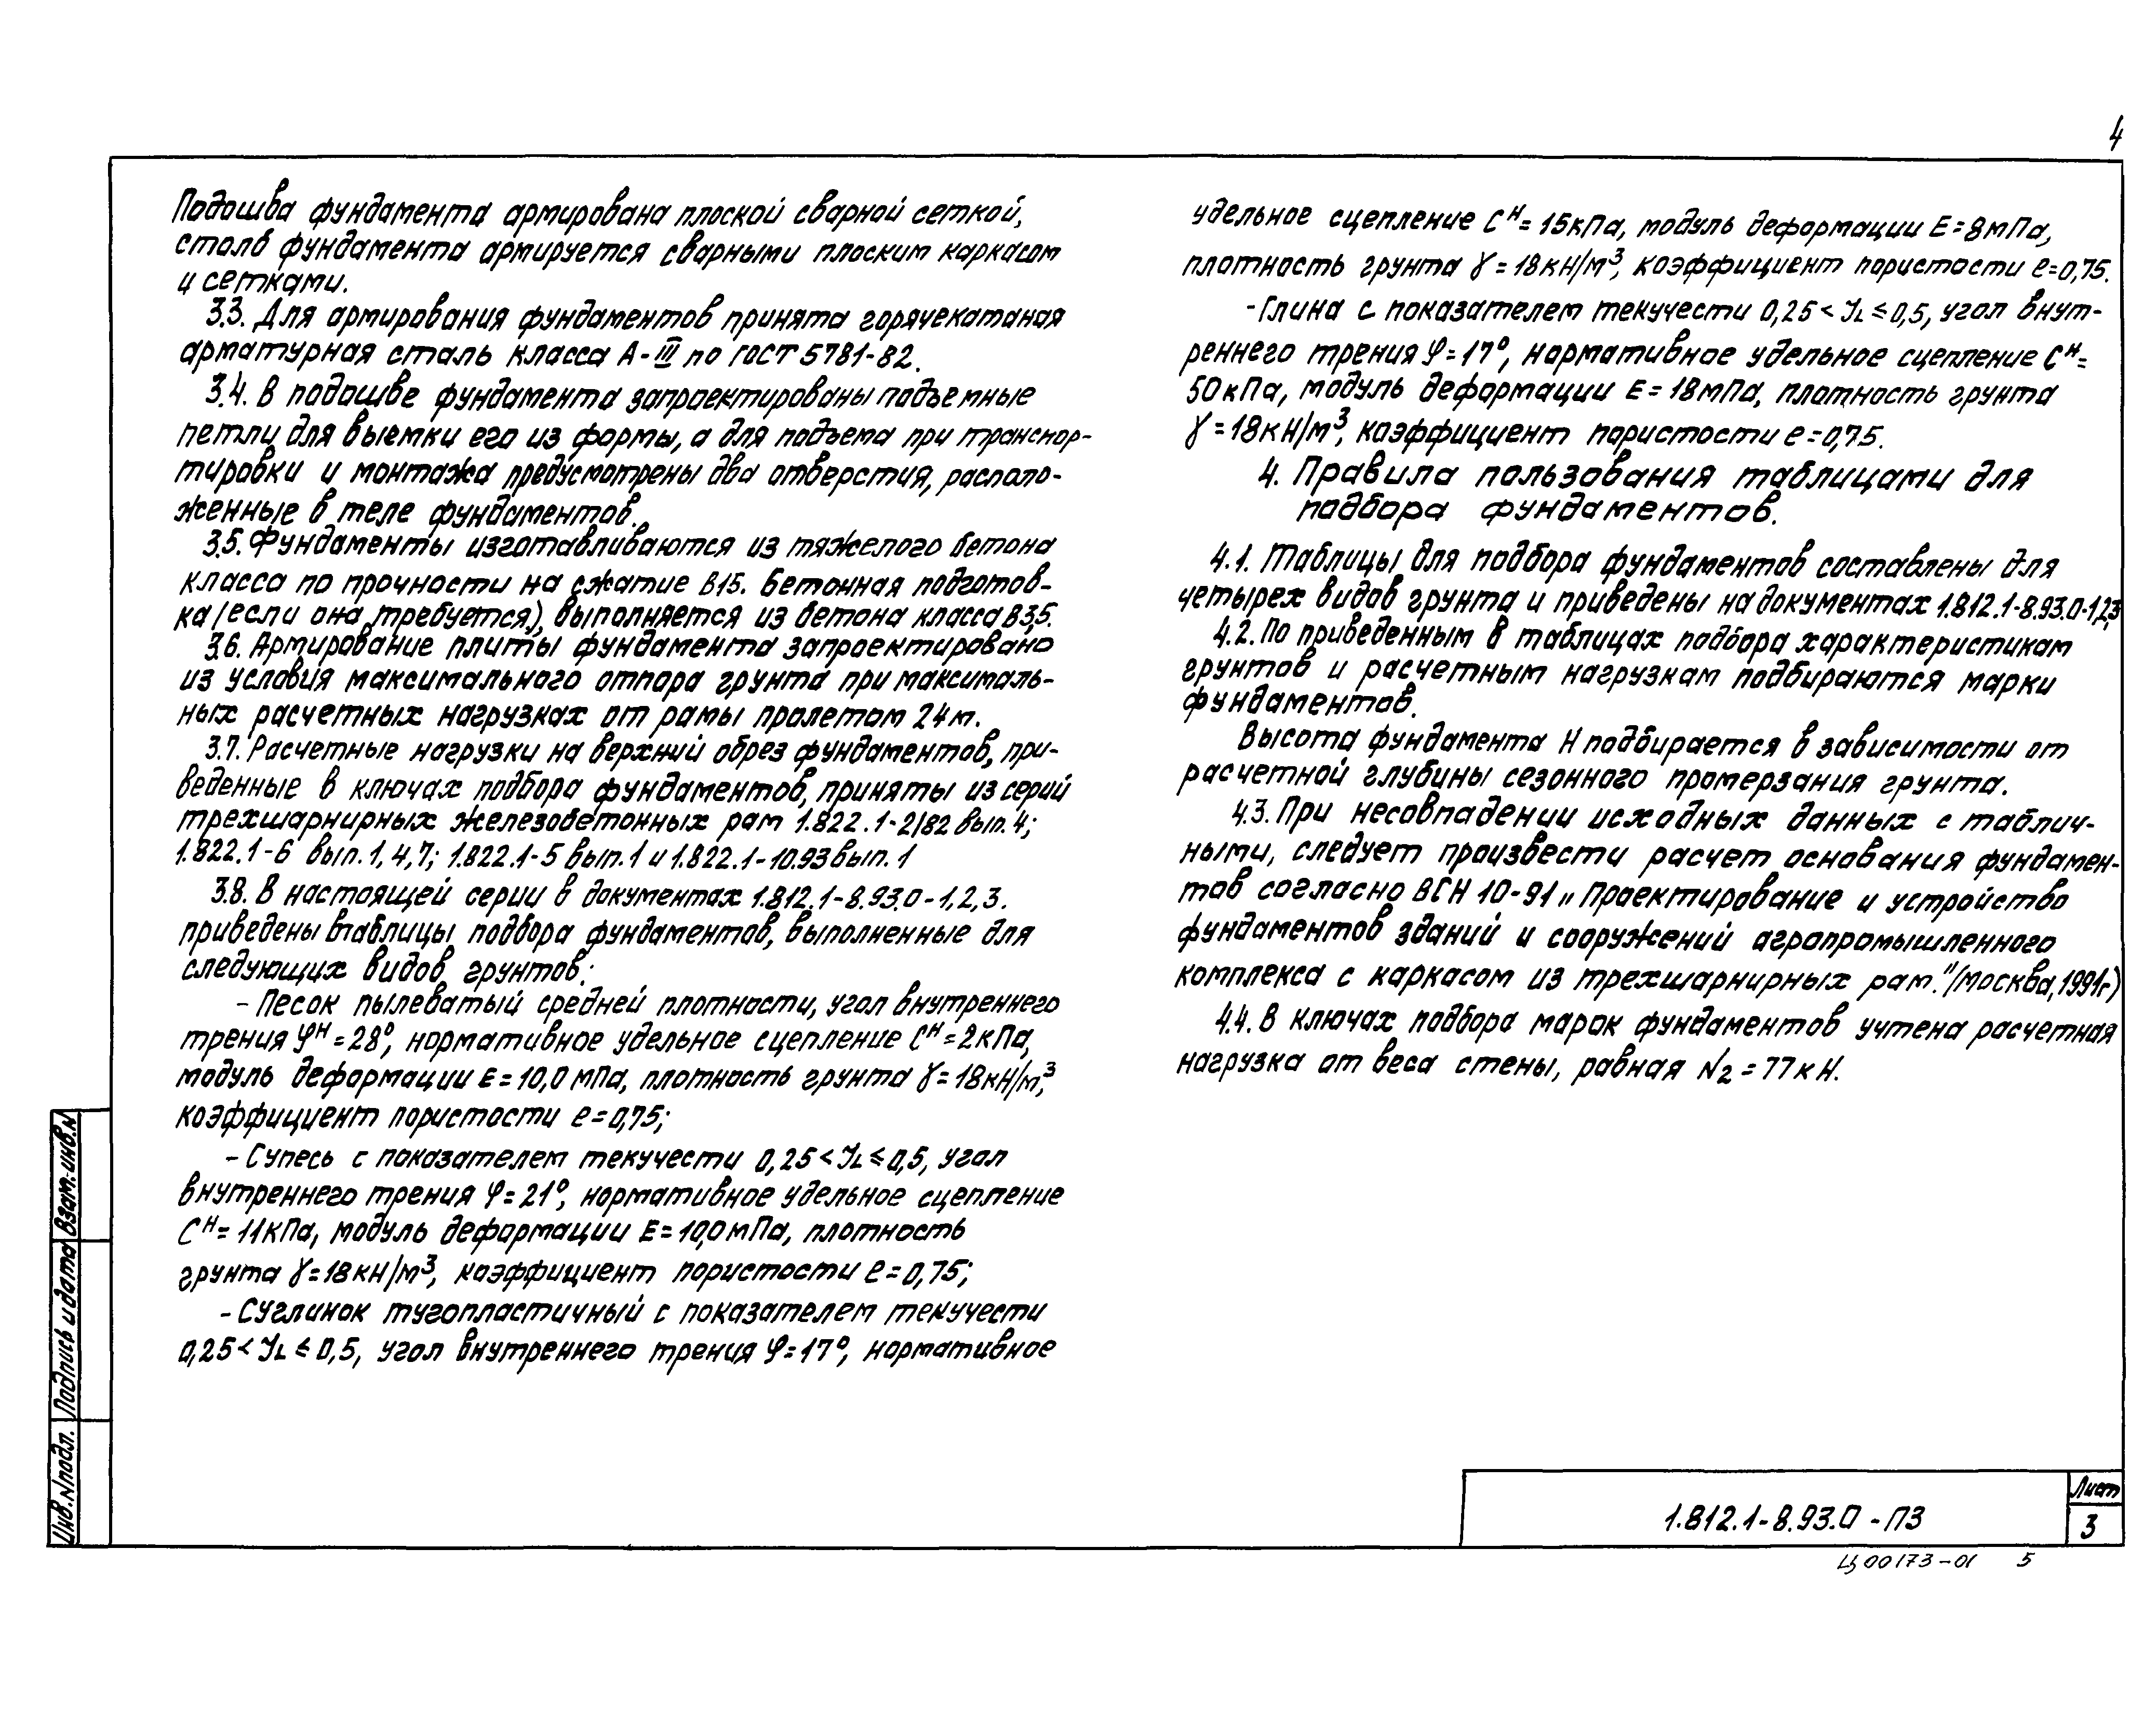 4
Подошва фундамента армирована плоской сварной сеткой,
столб фундамента армируется сварными плоским каркасом
и сетками.
3.3. Для армирования фундаментов принята горячекатаная
арматурная сталь класса А-III по ГОСТ 5781-82.
3.4. В подошве фундамента запроектированы подъемные
петли для выемки его из формы, а для подъема при транспор-
тировки и монтажа предусмотрены два отверстия, располо-
женные в теле фундаментов.
3.5. Фундаменты изготавливаются из тяжелого бетона
класса по прочности на сжатие В15. Бетонная подготов-
ка (если она требуется), выполняется из бетона класса В3,5.
3.6. Армирование плиты фундамента запроектировано
из условия максимального отпора грунта при максималь-
ных расчетных нагрузках от рамы пролетом 24м.
3.7. Расчетные нагрузки на верхний обрез фундаментов, при-
веденные в ключах подбора фундаментов, приняты из серий
трехшарнирных железобетонных рам 1.822.1-2/82 вып. 4;
1.822.1-6 вып. 1, 4, 7; 1.822.1-5 вып. 1 и 1.822.1-10.93 вып. 1
3.8. В настоящей серии в документах 1.812.1-8.93.0-1,2,3.
приведены втаблицы подбора фундаментов, выполненные для
следующих видов грунтов:
- Песок пылеватый средней плотности, угол внутреннего
трения φᴴ=28°, нормативное удельное сцепление Сᴴ=2кПа,
модуль деформации Е=10,0 мПа, плотность грунта γ=18кН/м³,
коэффициент пористости е=0,75;
- Супесь с показателем текучести 0,25<JL≤0,5, угол
внутреннего трения φ=21°, нормативное удельное сцепление
Сᴴ=11кПа, модуль деформации Е=10,0мПа, плотность
грунта γ=18кН/м³, коэффициент пористости е=0,75;
- Суглинок тугопластичный с показателем текучести
0,25<JL≤0,5, угол внутреннего трения φ=17°, нормативное
удельное сцепление Сᴴ=15кПа, модуль деформации Е=8мПа,
плотность грунта γ=18кН/м³, коэффициент пористости е=0,75.
- Глина с показателем текучести 0,25<JL≤0,5, угол внут-
реннего трения φ=17°, нормативное удельное сцепление Сᴴ=
50кПа, модуль деформации Е=18мПа, плотность грунта
γ=18кН/м³, коэффициент пористости е=0,75.
4. Правила пользования таблицами для
подбора фундаментов.
4.1. Таблицы для подбора фундаментов составлены для
четырех видов грунта и приведены на документах 1.812.1-8.93.0-1,2,3
4.2. По приведенным в таблицах подбора характеристикам
грунтов и расчетным нагрузкам подбираются марки
фундаментов.
Высота фундамента Н подбирается в зависимости от
расчетной глубины сезонного промерзания грунта.
4.3. При несовпадении исходных данных с таблич-
ными, следует произвести расчет основания фундамен-
тов согласно ВСН 10-91 „Проектирование и устройство
фундаментов зданий и сооружений агропромышленного
комплекса с каркасом из трехшарнирных рам." (Москва, 1991г)
4.4. В ключах подбора марок фундаментов учтена расчетная
нагрузка от веса стены, равная N₂=77кН.
Инв.Nподл.
Подпись и дата
Взам.инв.N
1.812.1-8.93.0-ПЗ
Лист
3
Ц00173-01 5